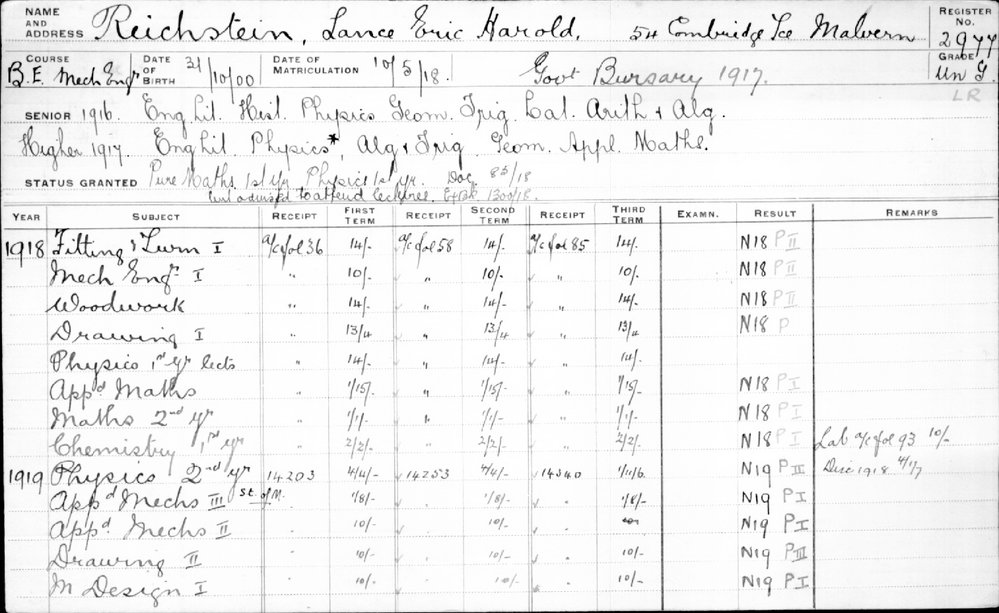 NAME AND ADDRESS Reichstein, Lance Eric Harold, 54 Cambridge Tce Malvern REGISTER No. 2977
COURSE B.E. Mech Engr DATE OF BIRTH 31/10/00 DATE OF MATRICULATION 10/5/18. Govt Bursary 1917. GRADE Un G.
LR
SENIOR 1916. Eng Lit. Hist. Physics Geom. Trig. Lat. Arith & Alg.
Higher 1917. Eng Lit. Physics*, Alg & Trig. Geom. Appl. Maths.
STATUS GRANTED Pure Maths 1st Yr. Physics 1st Yr. Doc 83/18
but advised to attend lectures. 1300/18.
YEAR SUBJECT RECEIPT FIRST TERM RECEIPT SECOND TERM RECEIPT THIRD TERM EXAMN. RESULT REMARKS
1918 Fitting & Turn I a/c fol 36 14/- a/c fol 58 14/- a/c fol 85 14/- N18 P II
Mech Engr. I " 10/- " 10/- " 10/- N18 P II
Woodwork " 14/- " 14/- " 14/- N18 P II
Drawing I " 13/4 " 13/4 " 13/4 N18 P
Physics 1st yr lects " 14/- " 14/- " 14/-
Appd Maths " 1/15/- " 1/15/- " 1/15/- N18 P I
Maths 2nd yr " 1/1/- " 1/1/- " 1/1/- N18 P I
Chemistry 1st yr " 2/2/- " 2/2/- " 2/2/- N18 P I Lab a/c fol 93 10/-
1919 Physics 2nd yr 14203 4/4/- 14253 4/4/- 14340 1/11/6 N19 P III Disc 1918 4/1/7
Appd Mechs III St. of M. 1/8/- " 1/8/- " 1/8/- N19 P I
Appd Mechs II " 10/- " 10/- " 10/- N19 P I
Drawing II " 10/- " 10/- " 10/- N19 P III
M Design I " 10/- " 10/- " 10/- N19 P I